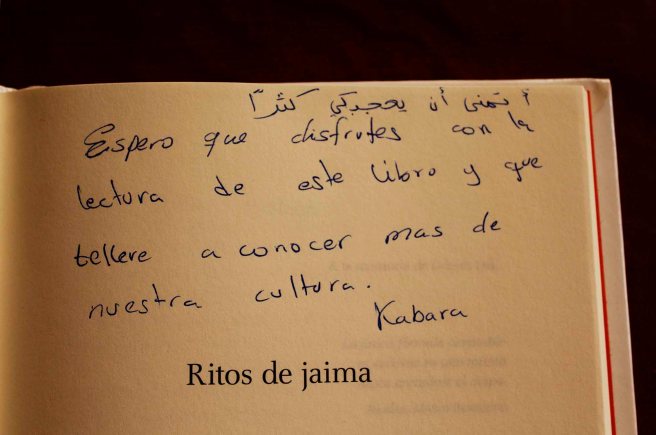 أتمنى أن يعجبكِ كثرًا
Espero que disfrutes con la
lectura de este libro y que
te lleve a conocer mas de
nuestra cultura.
Kabara
Ritos de jaima